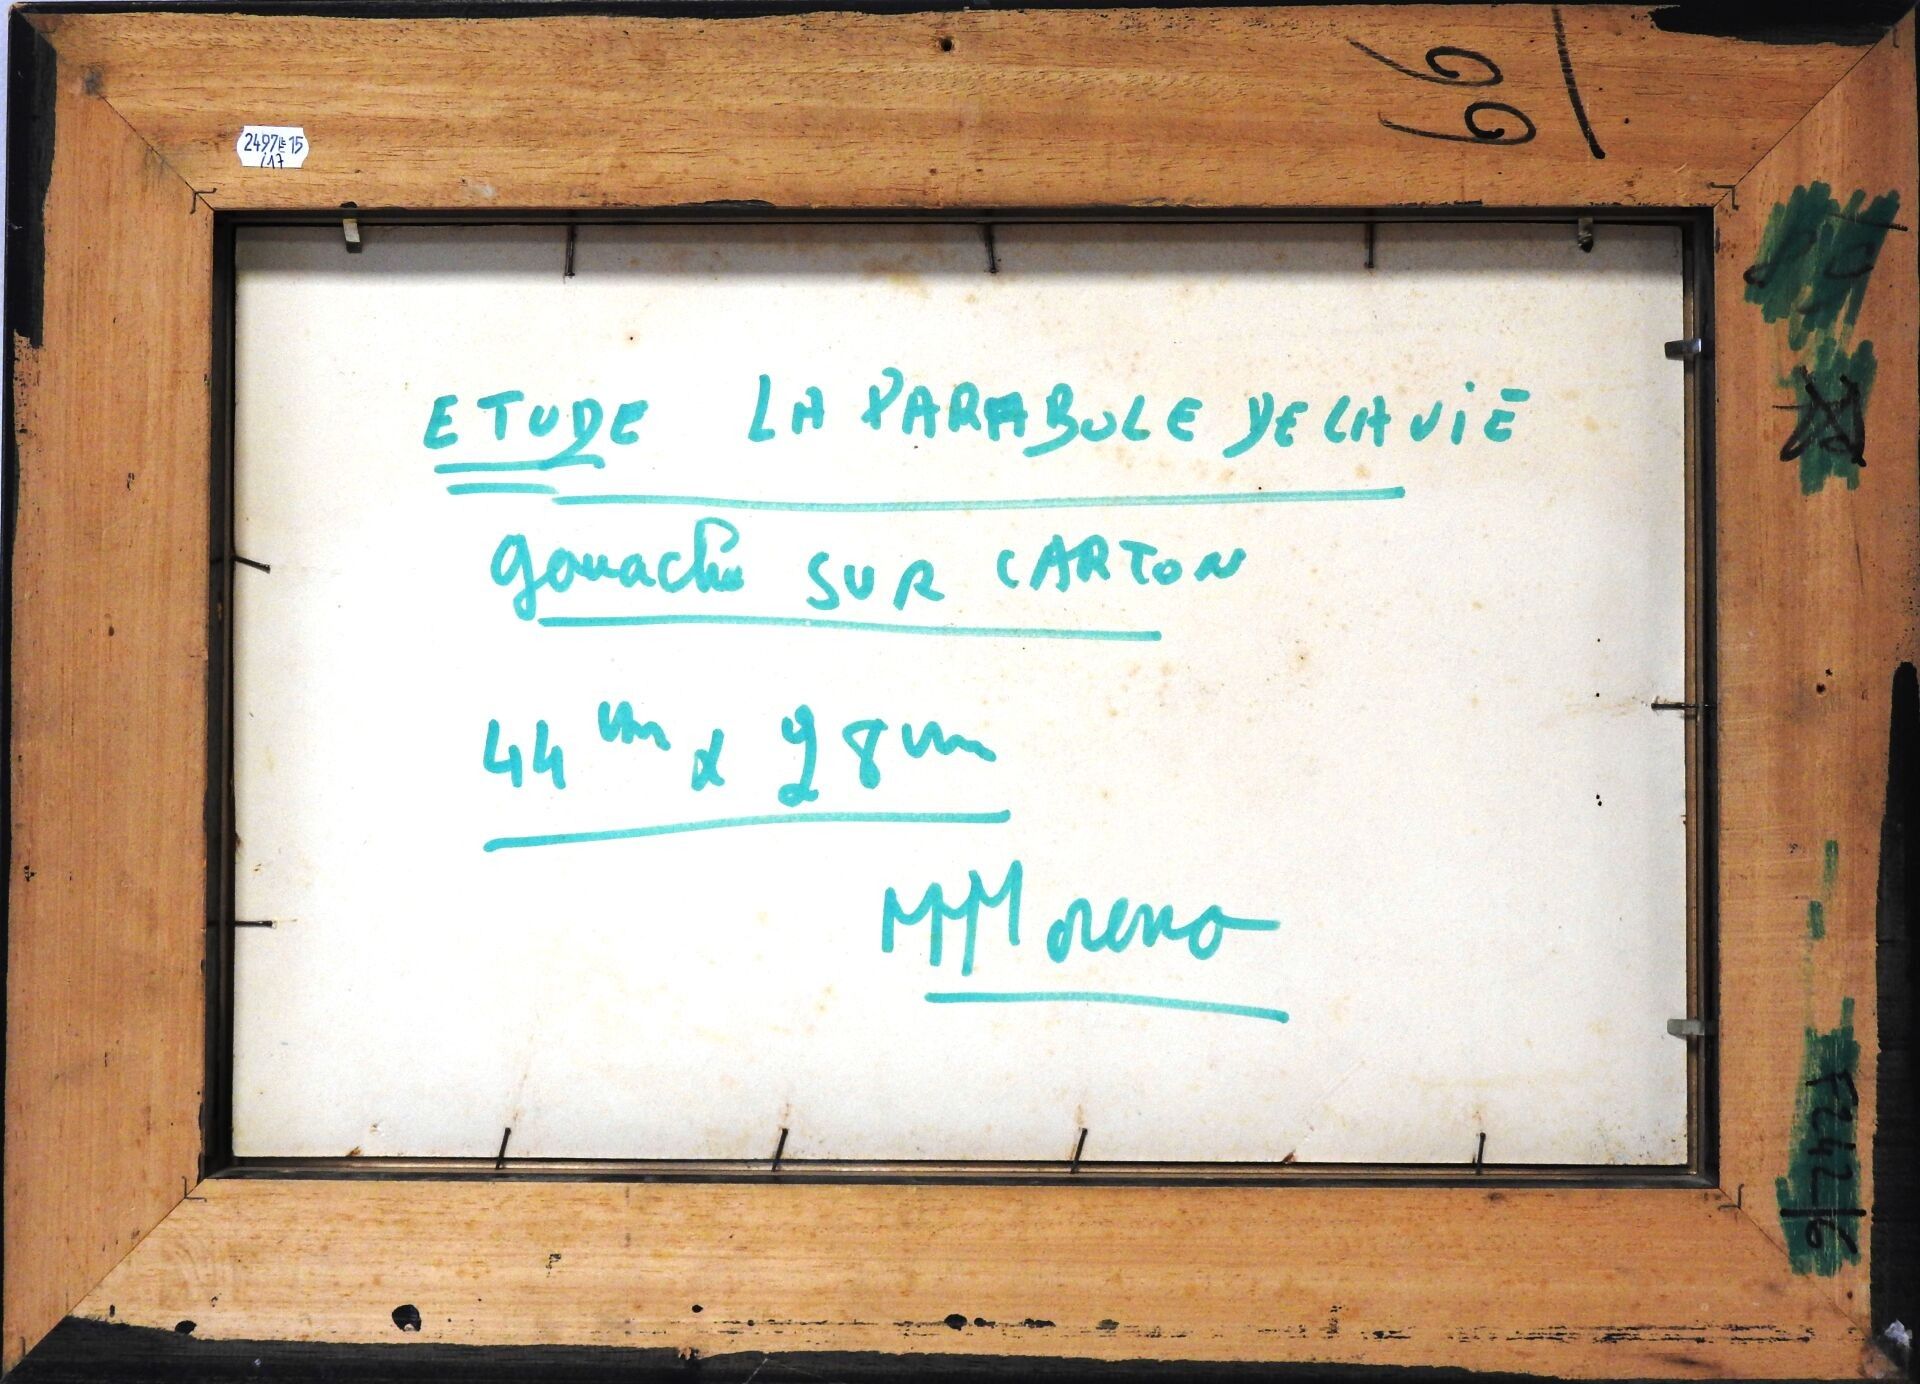 99
2497E15
/17
ETUDE LA PARABOLE DE LA VIE
gouache SUR CARTON
44 cm x 28 cm
MMoreno
F242/6